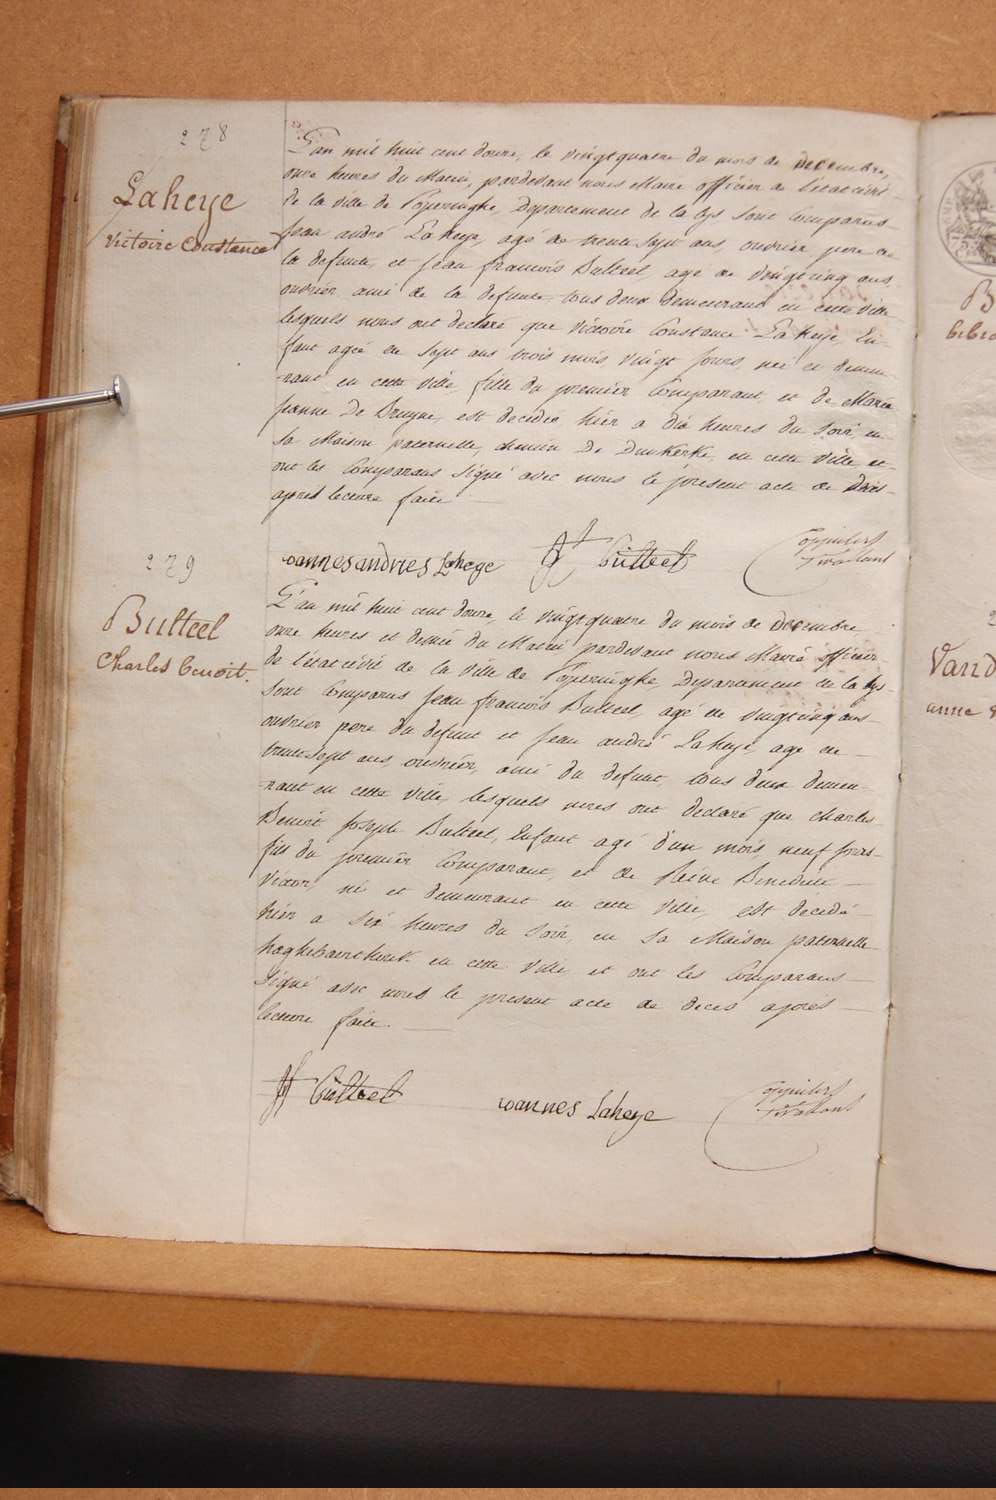 278
Laheye
Victoire Constance
L'an mil huit cent douze, le vingtquatre du mois de decembre,
onze heures du Matin, pardevant nous Maire officier de l'état civil
de la ville de Poperinghe, Departement de la lys sont Comparus
Jean andré Laheye, agé de trente sept ans, ouvrier pere de
la defunte, et Jean francois Bulteel, agé de vingtcinq ans
ouvrier ami de la defunte, tous deux demeurant en cette ville
lesquels nous ont declaré que Victoire Constance Laheye En-
fant agée de sept ans trois mois vingt jours, née et demeu-
rant en cette ville, fille du premier Comparant, et de Marie
Jeanne De Bruyne, est decedée hier a dix heures du soir, en
sa Maison paternelle, chemin De Dunkerke, en cette ville et
ont les Comparans signé avec nous le present acte de deces
après lecture faite
ioannes andries Laheye
Bulteel
279
Bulteel
Charles benoit.
L'an mil huit cent douze, le vingtquatre du mois de Decembre
onze heures et demie du Matin pardevant nous Maire officier
de l'état civil de la ville de Poperinghe, Departement de la lys
sont Comparus Jean francois Bulteel, agé de vingtcinq ans
ouvrier pere du defunt et Jean andré Laheye, agé de
trente sept ans, ouvrier, ami du defunt, tous deux demeu-
rant en cette ville, lesquels nous ont declaré que Charles
Benoit Joseph Bulteel, Enfant agé d'un mois neuf jours
fils du premier Comparant, et de Benedicte
né et demeurant en cette ville, est decedé
hier a six heures du soir, en sa Maison paternelle
en cette ville et ont les Comparans
signé avec nous le present acte de deces après
lecture faite.
Bulteel
ioannes Laheye
B
Vand
anne